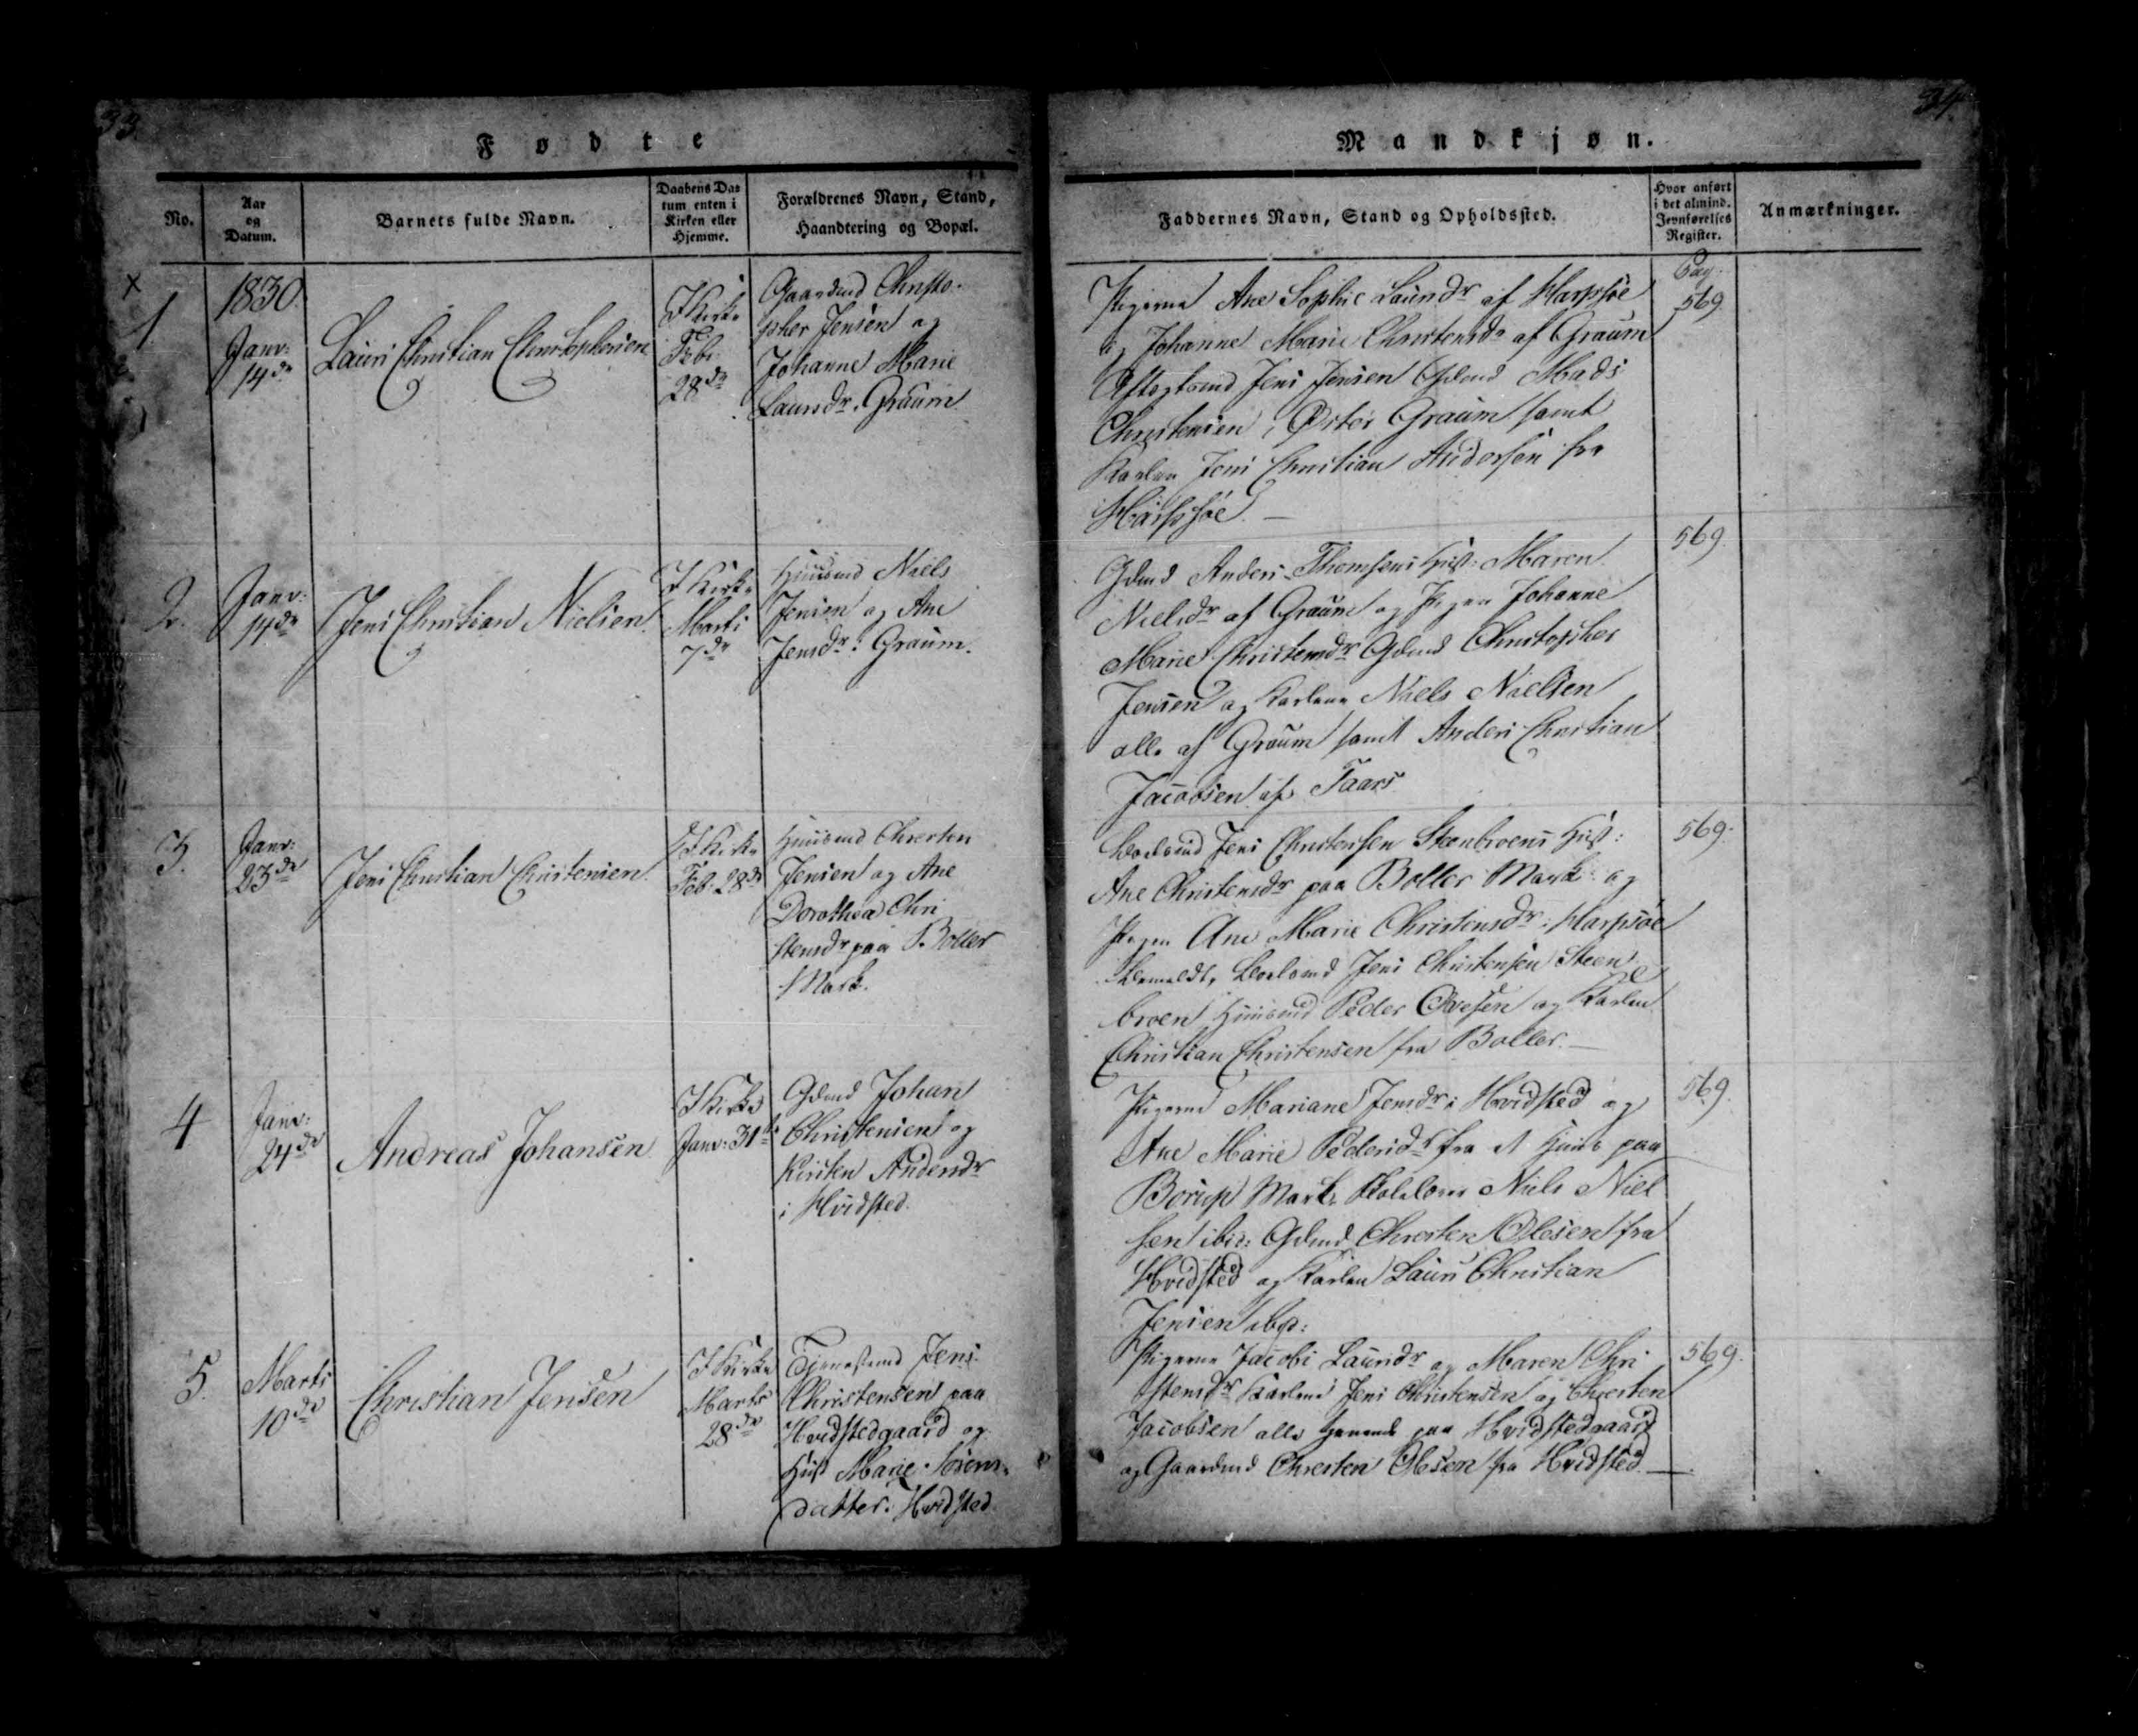 33
34
Fødte
Mandkjøn.
No.
Aar
og
Datum.
Barnets fulde Navn.
Daabens Da-
tum enten i
Kirken eller
Hjemme.
Forældrenes Navn, Stand,
Haandtering og Bopæl.
Faddernes Navn, Stand og Opholdssted.
Hvor anført
i det almind.
Jevnførelses
Register.
Anmærkninger.
×
1.
1830.
Janv:
14de
Laurs Christian Christophersen
I Kirke
Feb:
28de
Gaardmd Christo-
pher Jensen og
Johanne Marie
Laursdr. Graum
Pigerne Ane Sophie Laursdr af Harpsøe
og Johanne Marie Christensdr af Graum
Aftægtsmd Jens Jensen Gdmd Mads
Christensen i Øster Graum samt
Karlen Jens Christian Andersen fra
Harpsøe. —
Pag.
569
2.
Janv:
14de
Jens Christian Nielsen.
I Kirke
Marts
7de
Huusmd Niels
Jensen og Ane
Jensdr: Graum.
Gdmd Anders Thomsens Hust: Maren
Nielsdr af Graum og Pigen Johanne
Marie Christensdr Gdmd Christopher
Jensen og Karlene Niels Nielsen
alle af Graum samt Anders Christian
Jacobsen af Taars
569.
3.
Janv:
23de
Jens Christian Christensen.
I Kirke
Feb: 28de
Huusmd Chresten
Jensen og Ane
Dorothea Chri
stensdr paa Boller
Mark.
Jens Christensen Steenbroens Hust:
Ane Christensdr paa Boller Mark og
Pigen Ane Marie Christensdr i Harpsøe
Jens Christensen Steen
broen Huusmd Peder Ovesen og Karlen
Christian Christensen fra Boller. —
569.
4
Janv:
24de
Andreas Johansen
I Kirke
Janv: 31te
Gdmd Johan
Christensen og
Kirsten Andersdr
i Hvidsted.
Pigerne Mariane Jensdr i Hvidsted og
Ane Marie Pedersdr fra et Huus paa
Borup Mark, Skolelærer Niels Niel
sen ibid: Gdmd Chresten Olesen fra
Hvidsted og Karlen Laurs Christian
Jensen ibid:
569.
5.
Marts
10de
Christian Jensen
I Kirke
Marts
28de
Tjenestemd Jens
Christensen paa
Hvidstedgaard og
Hust Marie Sørens-
datter. Hvidsted
Pigerne Jacobi Laursdr og Maren Chri
stensdr Karlene Jens Christensen og Chresten
Jacobsen alle tjenende paa Hvidstedgaard
og Gaardmd Chresten Olesen fra Hvidsted —
569.